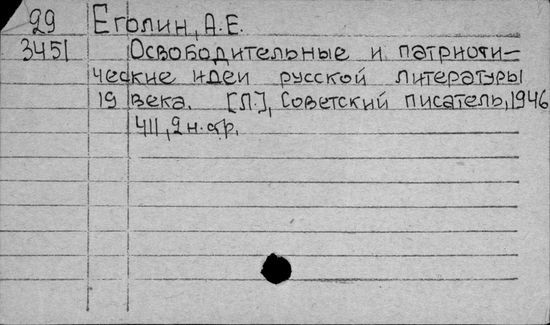 29 Еголин, А.Е.
3451 Освободительные и патриоти-
ческие идеи русской литературы
19 века. [Л.], Советский писатель, 1946
411, 2 н. стр.